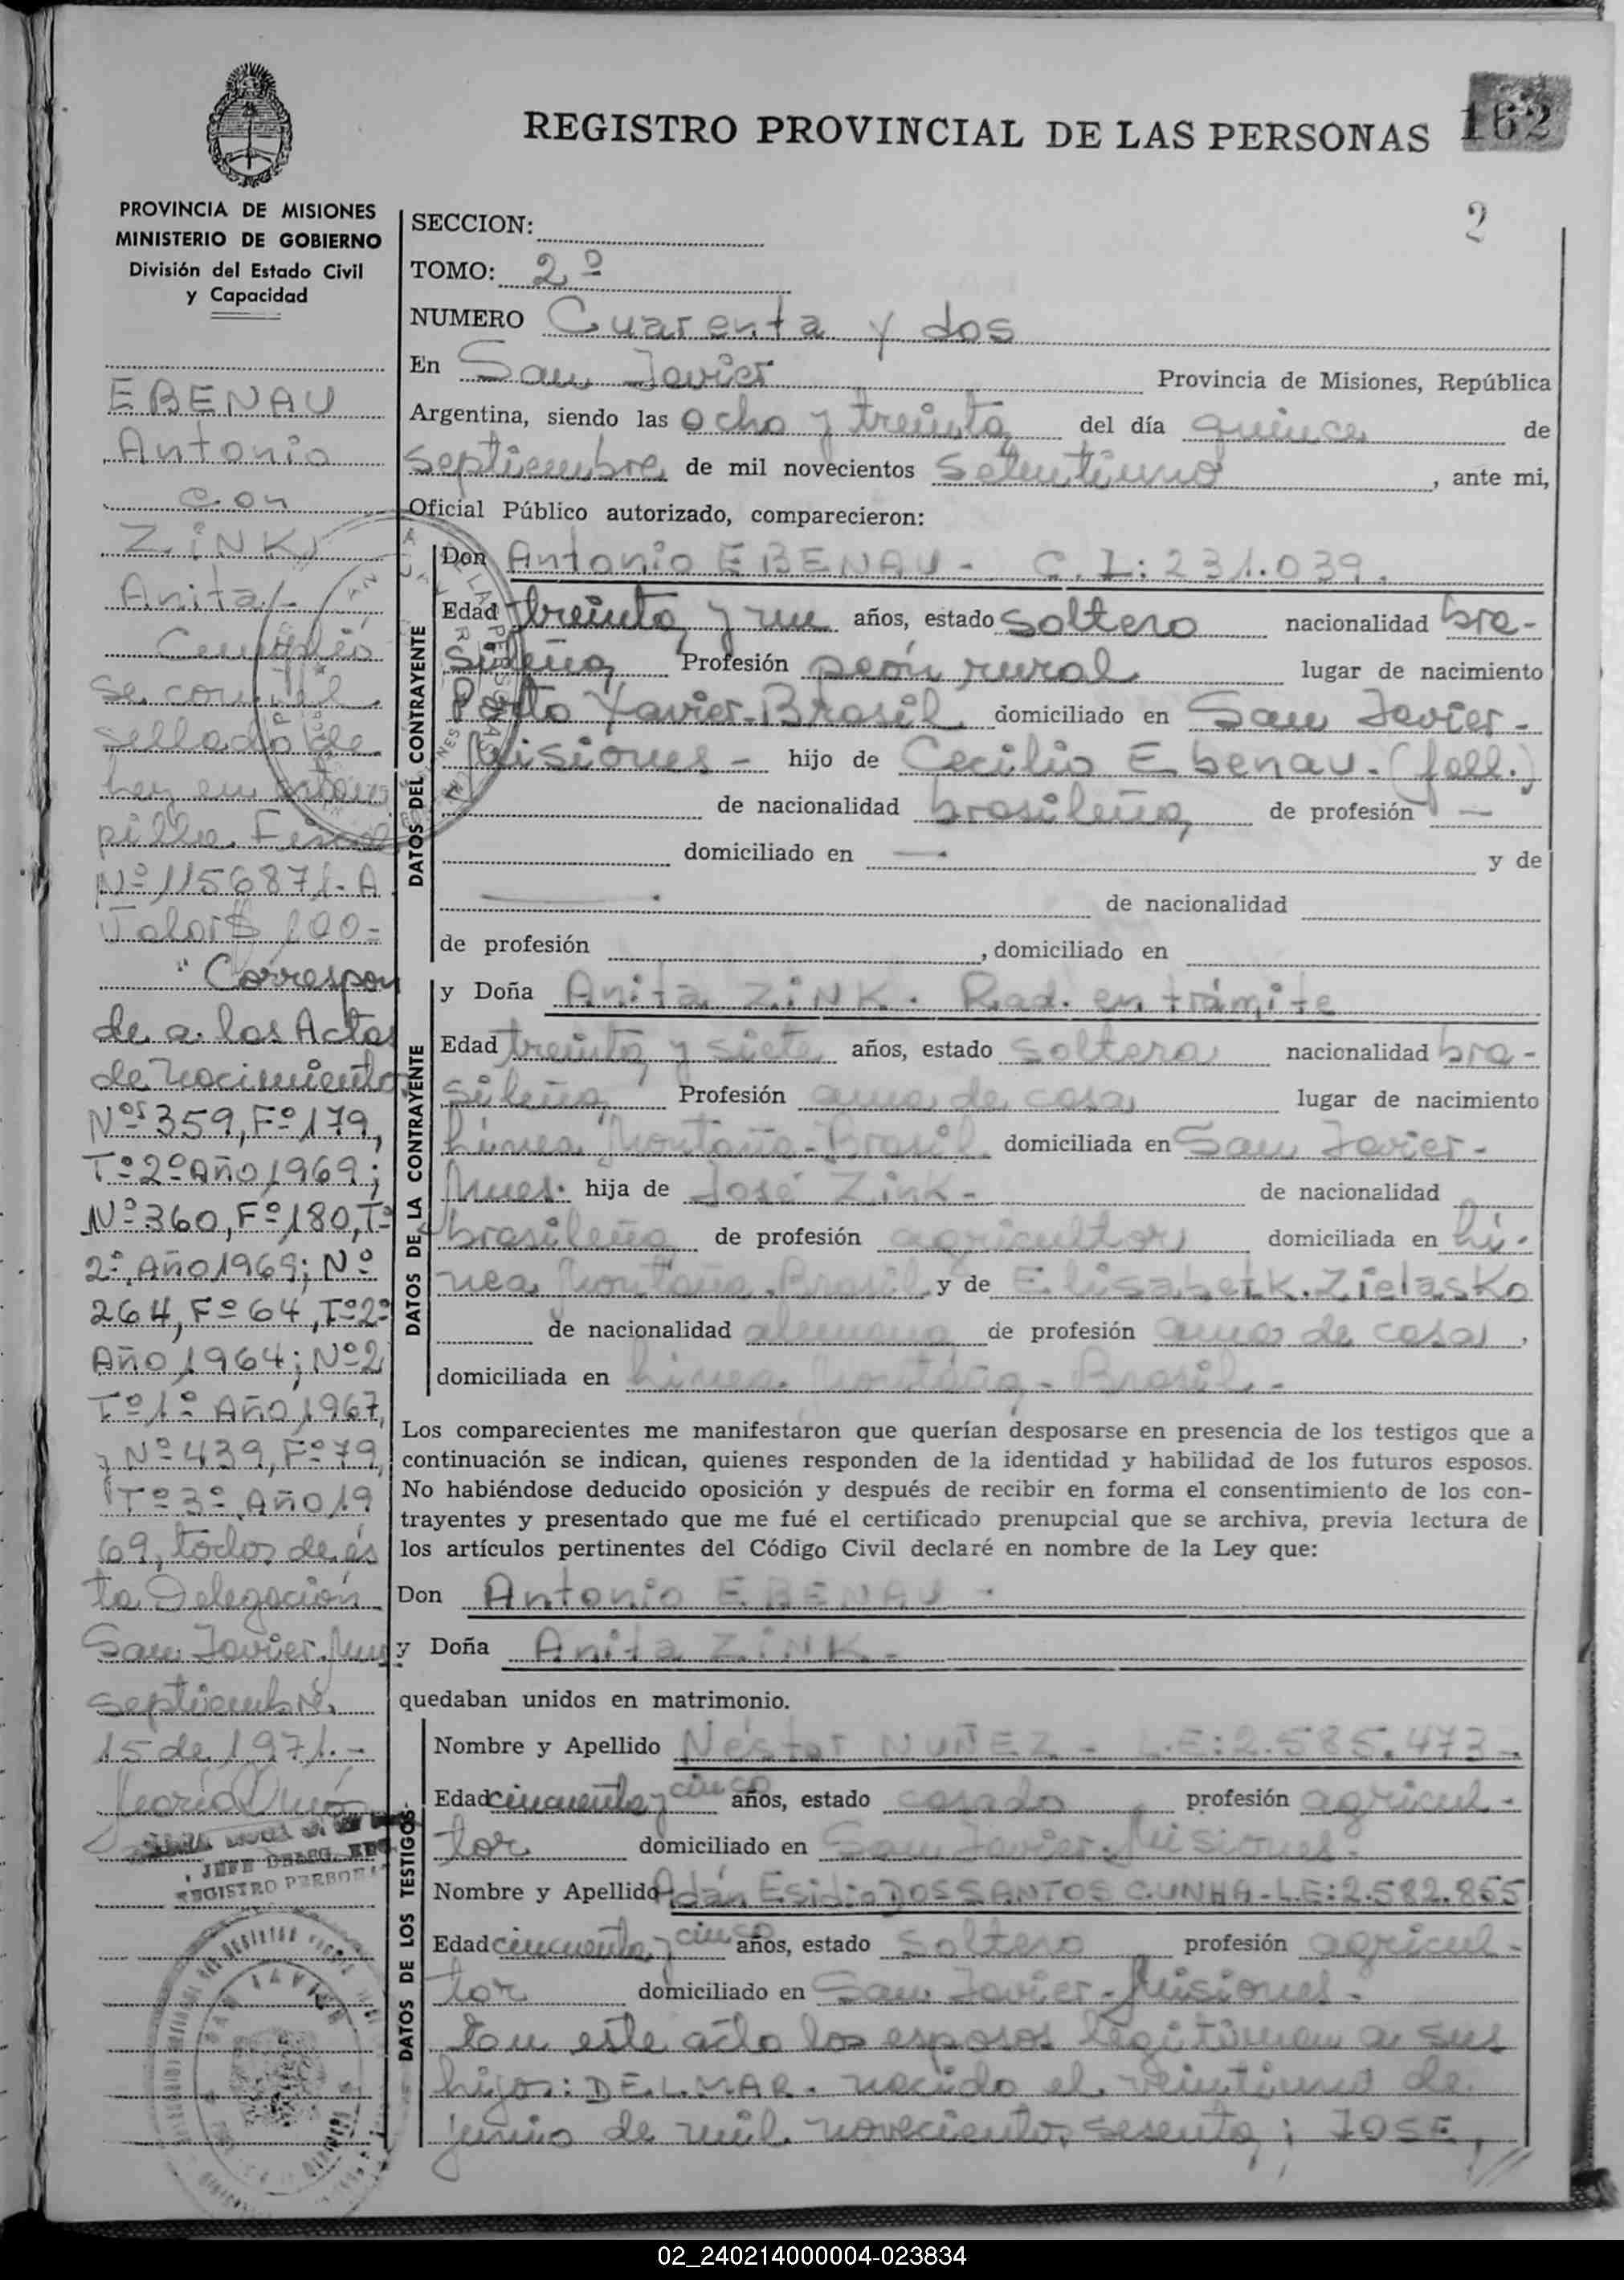 REGISTRO PROVINCIAL DE LAS PERSONAS
162
2
PROVINCIA DE MISIONES
MINISTERIO DE GOBIERNO
División del Estado Civil
y Capacidad
EBENAU
Antonio
con
ZiNK
Anita/-
Cumplió
se con el
sellado de
ley en estam
pilla Fiscal
Nº 1156871-A
Valor $ 100=
"Correspon
de a los Actas
de nacimiento
Nºs 359, Fº 179,
Tº 2º Año 1969;
Nº 360, Fº 180, Tº
2º, Año 1969; Nº
264, Fº 64, Tº 2º
Año 1964; Nº 2
Tº 1º Año 1967,
y Nº 439, Fº 79,
Tº 3º Año 19
69, todos de és
ta Delegación
San Javier, Mnes
septiembre
15 de 1971.-
JEFE DELEG.
REGISTRO PERSONAS
SECCION:
TOMO: 2º
NUMERO Cuarenta y dos
En San Javier Provincia de Misiones, República
Argentina, siendo las ocho y treinta del día quince de
septiembre de mil novecientos setentiuno, ante mi,
Oficial Público autorizado, comparecieron:
DATOS DEL CONTRAYENTE
Don Antonio EBENAU - C.I: 231.039.
Edad treinta y un años, estado soltero nacionalidad bra-
sileña Profesión peón rural lugar de nacimiento
Porto Xavier-Brasil domiciliado en San Javier-
Misiones - hijo de Cecilio Ebenau. (fall.)
de nacionalidad brasileña de profesión —
domiciliado en — y de
— de nacionalidad
de profesión , domiciliado en
DATOS DE LA CONTRAYENTE
y Doña Anita ZiNK. Rad. en trámite
Edad treinta y siete años, estado soltera nacionalidad bra-
sileña Profesión ama de casa lugar de nacimiento
Linea Montaña-Brasil domiciliada en San Javier-
Mnes. hija de José Zink- de nacionalidad
brasileña de profesión agricultor domiciliada en Li-
nea Montaña. Brasil y de Elisabetk. Zielasko
de nacionalidad alemana de profesión ama de casa ,
domiciliada en Linea Montaña - Brasil. -
Los comparecientes me manifestaron que querían desposarse en presencia de los testigos que a
continuación se indican, quienes responden de la identidad y habilidad de los futuros esposos.
No habiéndose deducido oposición y después de recibir en forma el consentimiento de los con-
trayentes y presentado que me fué el certificado prenupcial que se archiva, previa lectura de
los artículos pertinentes del Código Civil declaré en nombre de la Ley que:
Don Antonio EBENAU -
y Doña Anita ZiNK -
quedaban unidos en matrimonio.
DATOS DE LOS TESTIGOS
Nombre y Apellido Néstor NUÑEZ - L.E: 2.585.473-
Edad cincuenta y cinco años, estado casado profesión agricul-
tor domiciliado en San Javier-Misiones.
Nombre y Apellido Adán Esidio DOS SANTOS CUNHA-L.E: 2.582.855
Edad cincuenta y cinco años, estado soltero profesión agricul-
tor domiciliado en San Javier-Misiones.
En este acto los esposos legitiman a sus
hijos: DELMAR. nacido el veintiuno de
junio de mil novecientos sesenta; JOSE,
02_240214000004-023834